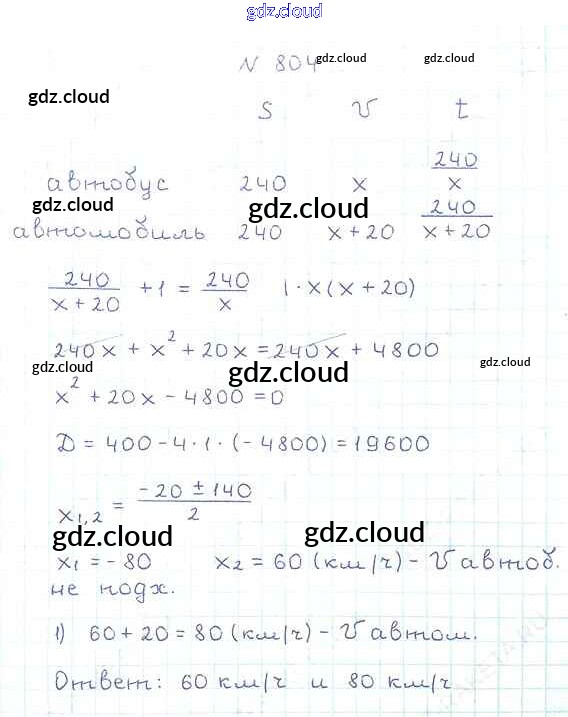 gdz.cloud
N 804 gdz.cloud gdz.cloud
gdz.cloud
S V t
автобус 240 x 240/x
gdz.cloud gdz.cloud gdz.cloud
автомобиль 240 x + 20 240/(x + 20)
240/(x + 20) + 1 = 240/x | · x(x + 20)
240x + x² + 20x = 240x + 4800
gdz.cloud gdz.cloud gdz.cloud
x² + 20x - 4800 = 0
D = 400 - 4 · 1 · (-4800) = 19600
x1,2 = (-20 ± 140)/2
gdz.cloud gdz.cloud
x1 = -80 x2 = 60 (км/ч) - V автоб.
не подх.
1) 60 + 20 = 80 (км/ч) - V автом.
Ответ: 60 км/ч и 80 км/ч